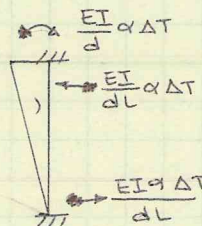 EI/d α ΔT
EI/dL α ΔT
EI α ΔT/dL